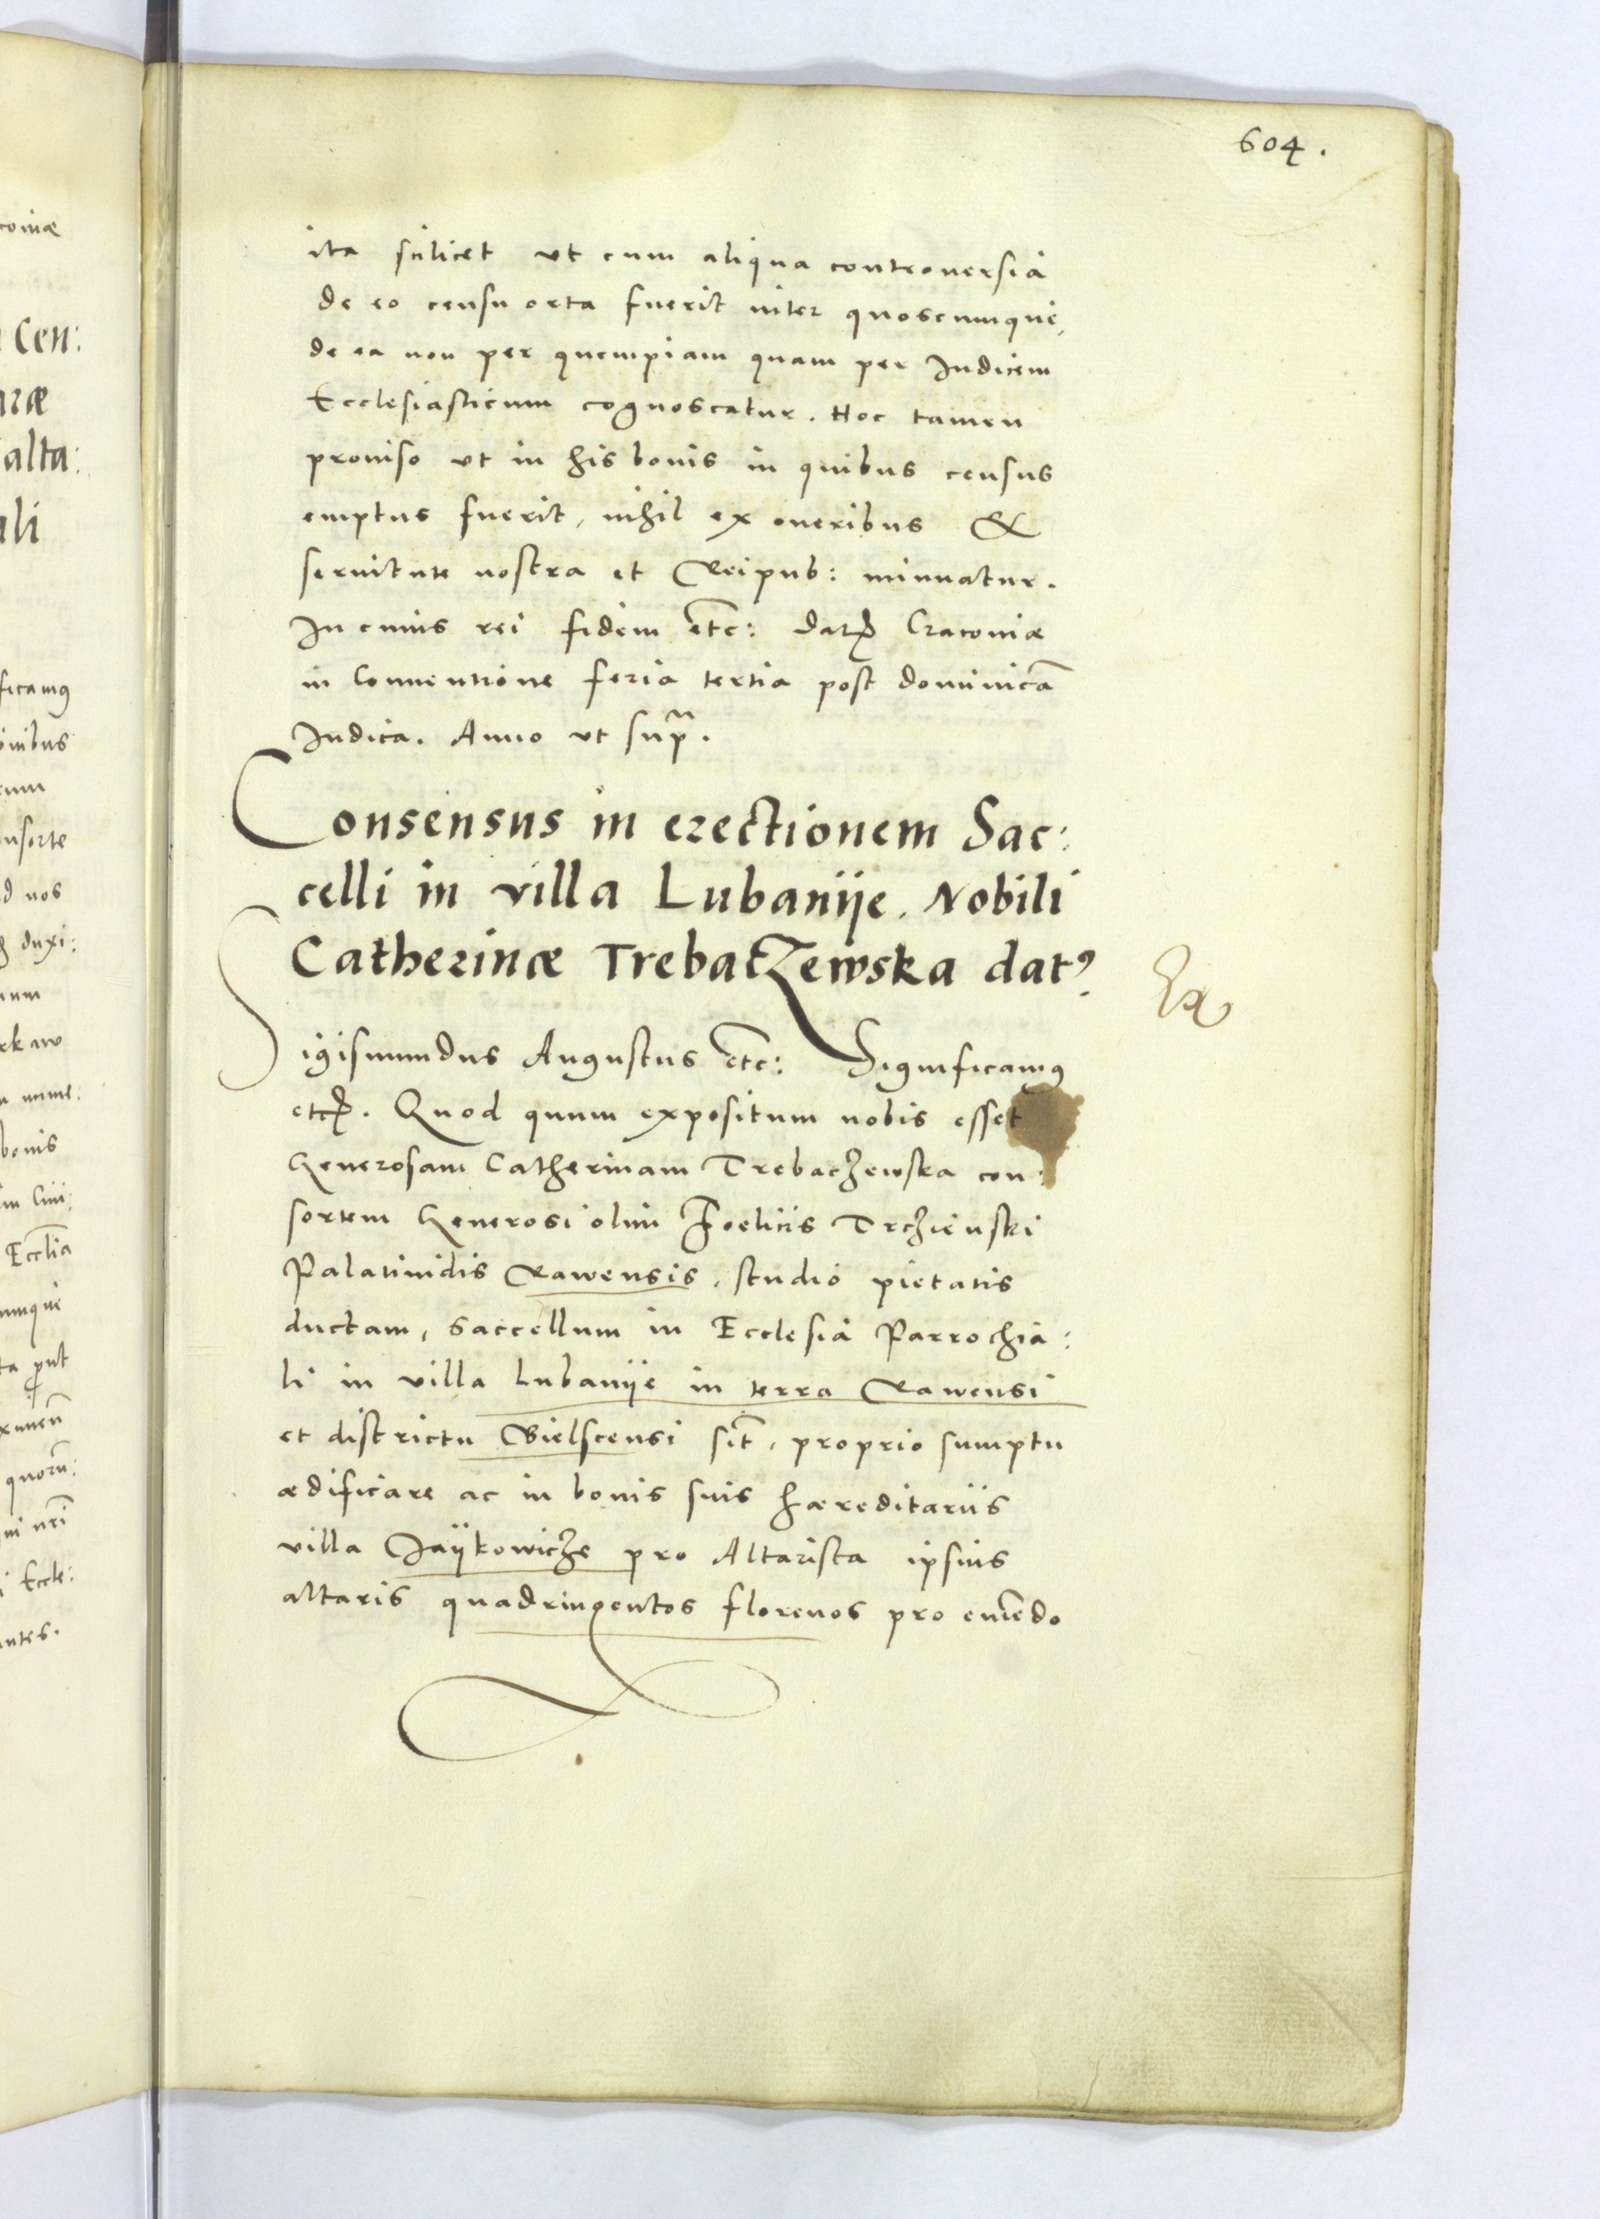 604.
ita scilicet vt cum aliqua controuersia
de eo censu orta fuerit inter quoscumque,
de ea non per quempiam quam per Iudicem
Ecclesiasticum cognoscatur. Hoc tamen
prouiso vt in his bonis in quibus census
emptus fuerit, nihil ex oneribus &
seruitute nostra et Reipub: minuatur.
In cuius rei fidem etc: Datꝭ Cracouiæ
in Conuentione feria tertia post dominicā
Iudica. Anno vt supᵃ.
Consensus in erectionem Sac:
celli in villa Lubanije. Nobili
Catherinæ Trebatzewska datꝰ
Sigismundus Augustus etc: Significamꝰ
etcꝭ. Quod quum expositum nobis esset
Generosam Catherinam Trebaczewska con:
sortem Generosi olim Foelicis Trczienski
Palatinidis Rawensis, studio pietatis
ductam, Saccellum in Ecclesia Parrochia:
li in villa Lubanije in terra Rawensi
et districtu Bielscensi sit̄, proprio sumptu
ædificare ac in bonis suis hæreditariis
villa Jaykowicze pro Altarista ipsius
altaris quadringentos florenos pro emēdo
coniæ
Cen:
aræ
alta:
ali
ficamꝰ
onibus
rum
nsorte
d nos
duxi:
num
rkaw
nume:
bonis
in Ciui:
Ecclīa
umque
ta prout
quorū:
ni nr̄i
i Eccle:
antes.